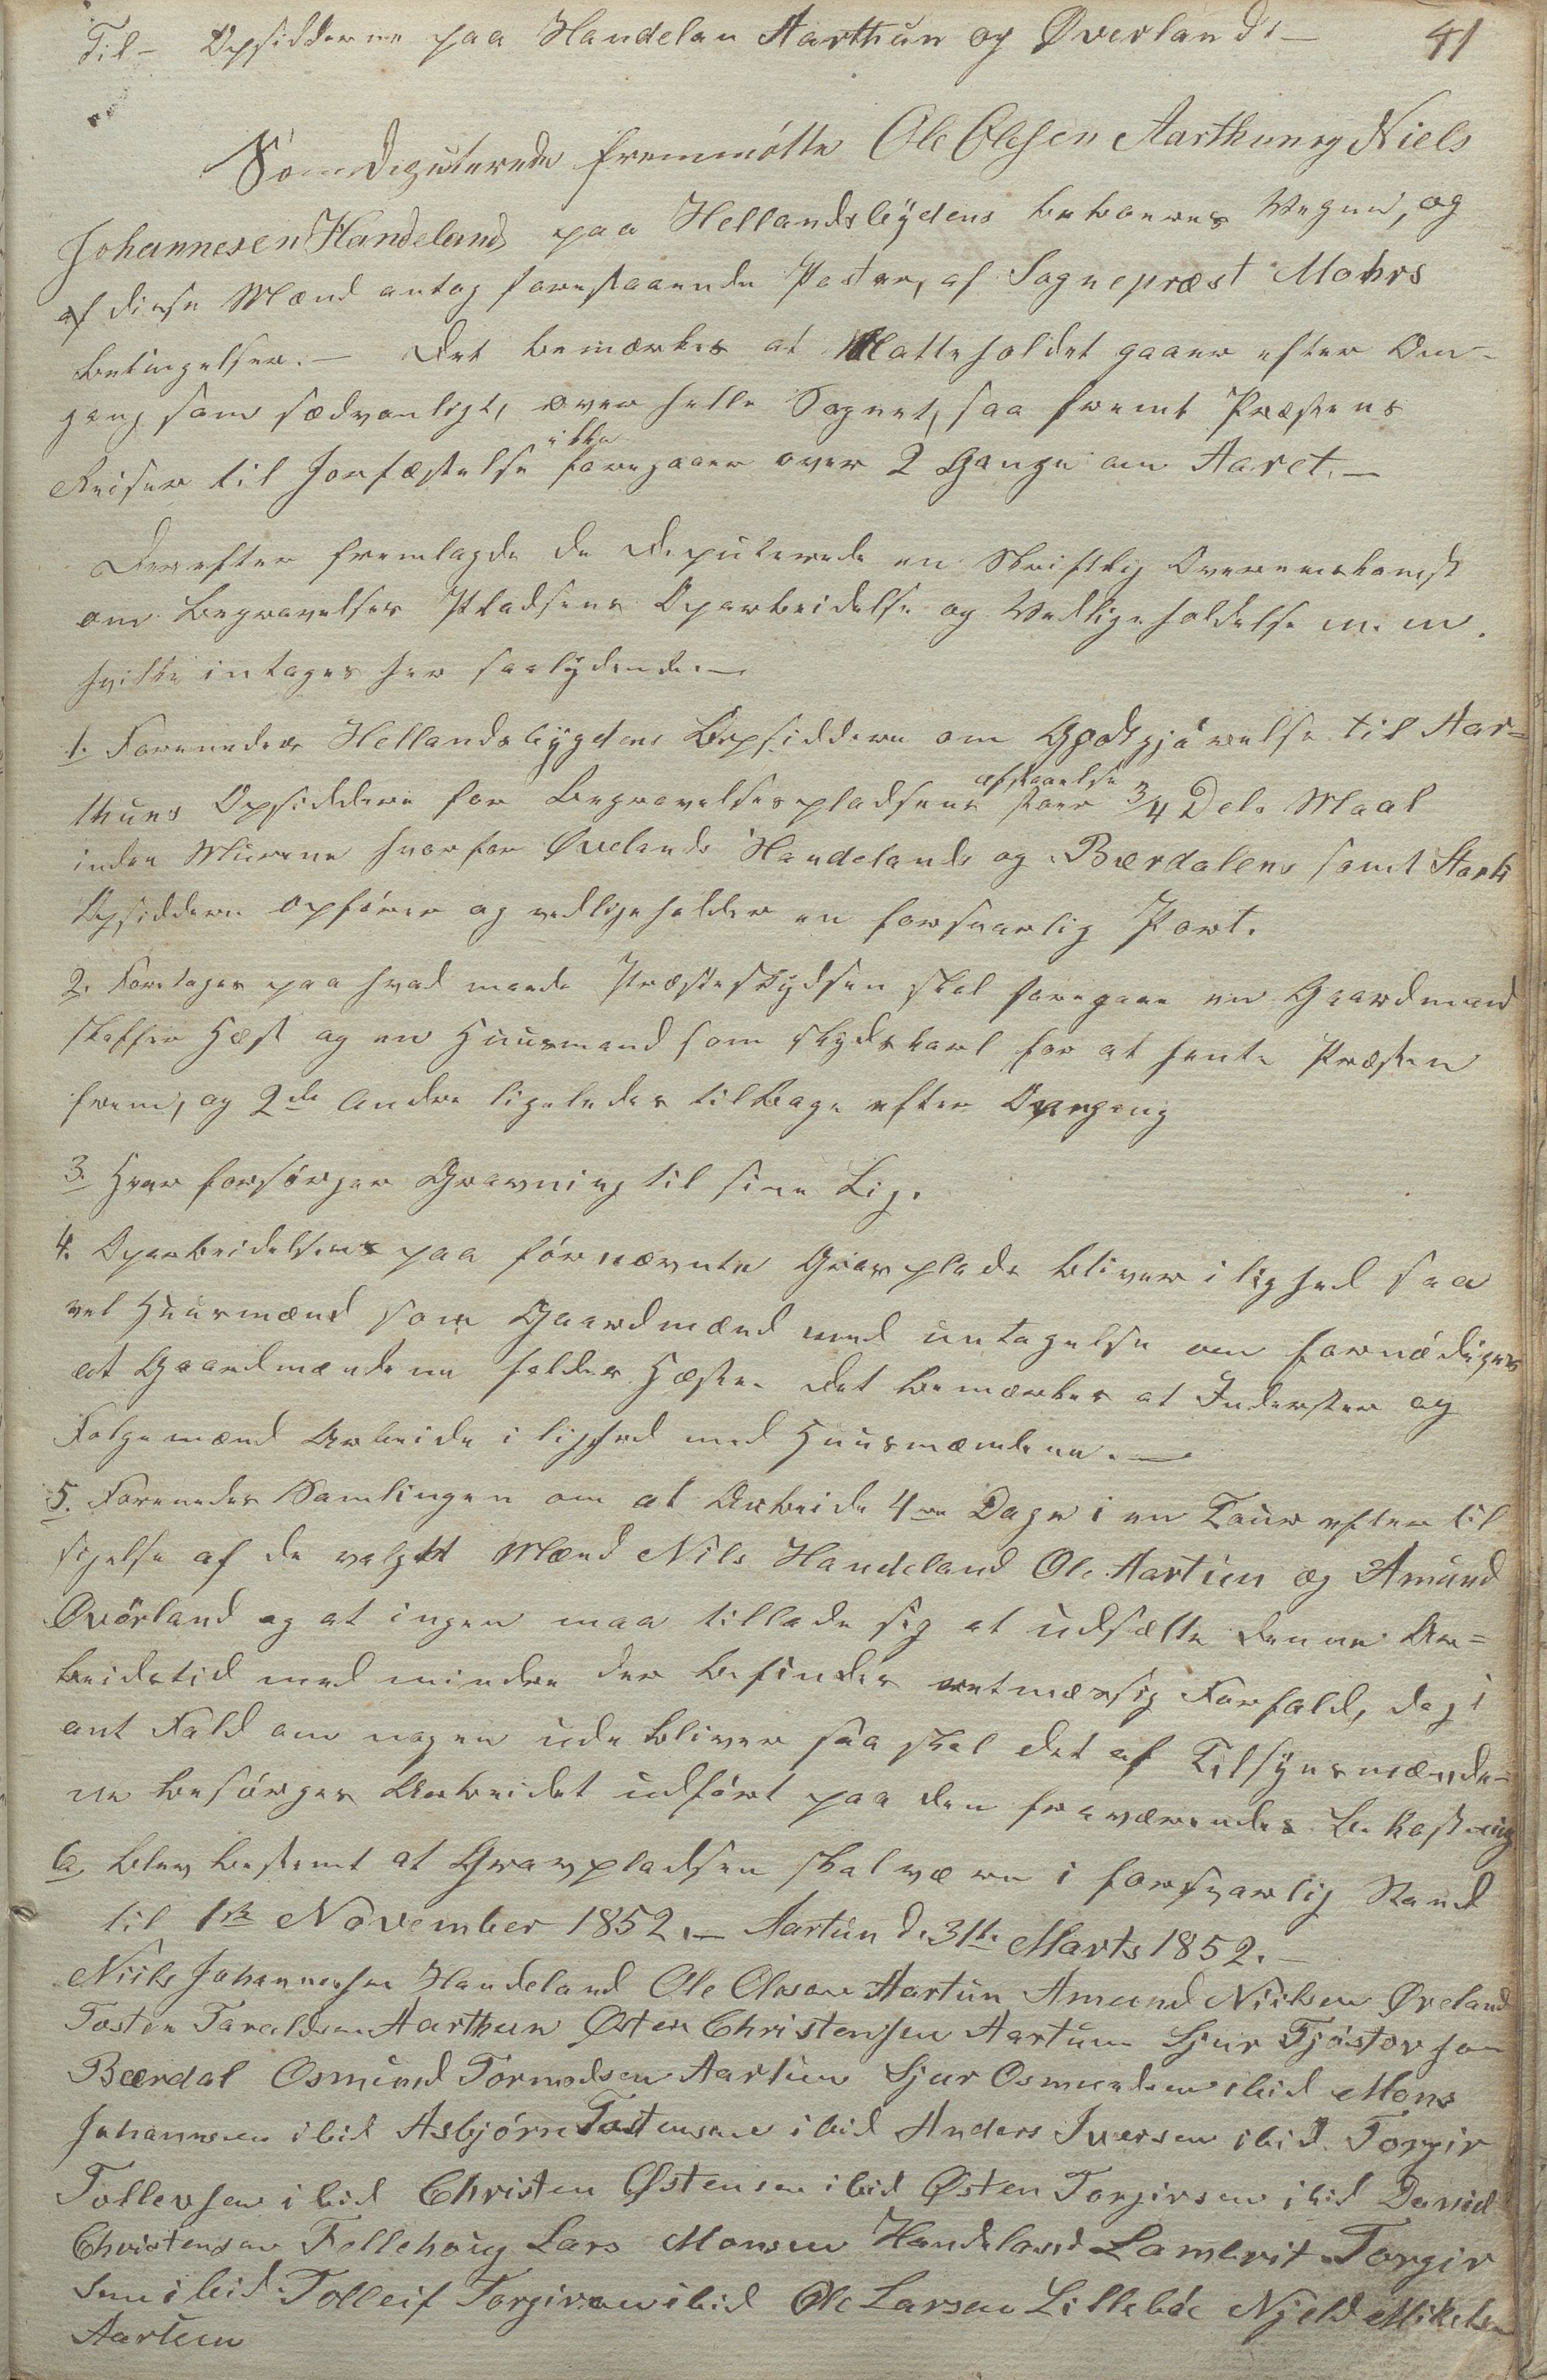 Til- Opsidderne paa Handelan Aarthun og Øverlands- 41
Som Deputerede fremmøtte Ole Olesen Aarthun og Niels
Johannesen Handeland paa Hellandsbÿdens beboeres Vegne, og
af disse Mænd antog forestaaende Poster, af Sognepræst Mohrs
betingelser. – Det bemærkes at Natteholdet gaaer efter Om-
gang som sædvanligt, over helle Sognet, saa fremt Præstens
Reiser til Jorfæstelse ikke foregaaer over 2 Gange om Aaret. –
Derefter fremlagde de Deputerede en Skriftlig Overenskomst
om Begravelses Pladsens Oparbeidelse og Vedligeholdelse m. m.
hvilke intages her saalÿdende. –
1. Forenedes Hellandsbÿgdens Opsiddere om Godtgjørelse til Aar=
thuns Opsiddere for Begravelsespladsens afstaaelse stoer 3/4 Dels Maal
inden Murene hvorfor Øvelands Handelands og Bærdalens samt Stark
Opsiddere opfører og vedligeholder en forsvarlig Port.
2. Foretages paa hvad maade Præsteskÿdsen skal foregaae en Gaardmand
skaffer Hæst og en Huusmand som skydskarl for at hente Præsten
frem, og 2de Andre ligeledes tilbage efter Omgang
3. Hver forsørger Gravning til sine Lig.
4. Oparbeidelsens paa førnævnte Gravplads bliver i lighed saa
vel Huusmænd som Gaardmænd med untagelse om fornødiges
at Gaardmændene holder Hæste. Det bemærkes at Inderster og
Folgemænd Arbeide i lighed med Huusmændene. –
5. Forenedes Samlingen om at Arbeide 4re Dage i en Tour efter til
sigelse af de valgte Mænd Nils Handeland Ole Aartun og Amund
Ovørland og at ingen maa tillade sig at udsætte denne Ar=
beidstid med mindre der befindes retmæssig Forfald, dog i
ant Fald om nogen ude bliver saa skal det af Tilsynsmænde-
ne besørges Arbeidet udført paa den fraværendes Bekostning
6 blev bestemt at Gravpladsen skal være i forsvarlig Stand
til 1ste November 1852. – Aartun d. 31te Marts 1852. –
Niils Johannesen Handeland Ole Olosen Aartun Amund Nielsen Øveland
Tosten Taraldsen Aarthun Østen Christensen Aartun Sjur Tjøstovsen
Bærdal Osmund Tormodsen Aartun Sjur Osmundsen ibid Mons
Johannesen ibid Asbjørn Tostensen ibid Anders Iversen ibid Torgir
Tollevsen ibid Christen Østensen ibid Østen Torgirsen ibid David
Christensen Fellehoug Lars Monsen Handeland Lamerit Torgir
sen ibid Tolleif Torgirsen ibid Ole Larsen Lillebøe Njeld Mikelsen
Aartun